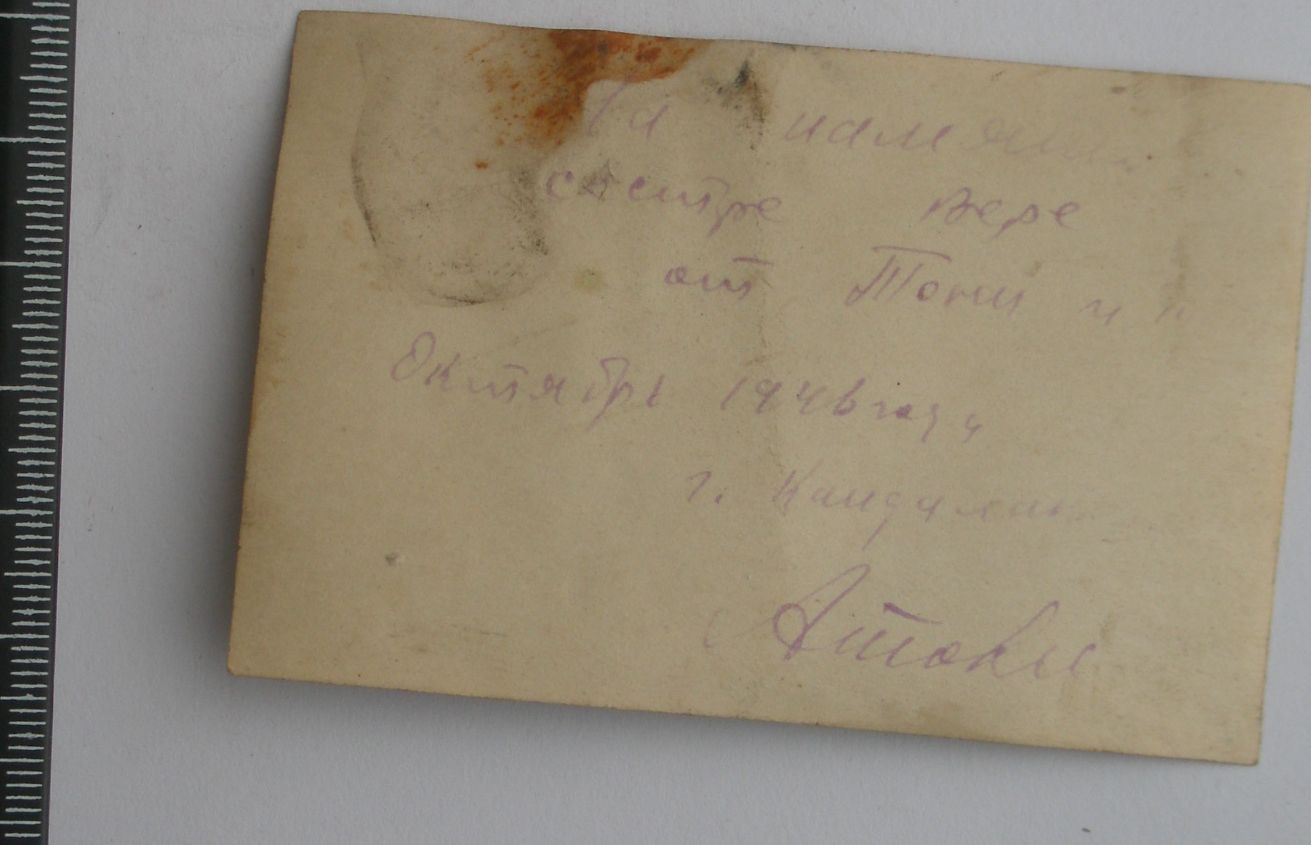 На память
сестре Вере
от Тони и
Октябрь 1946 года
г. Кандалакша